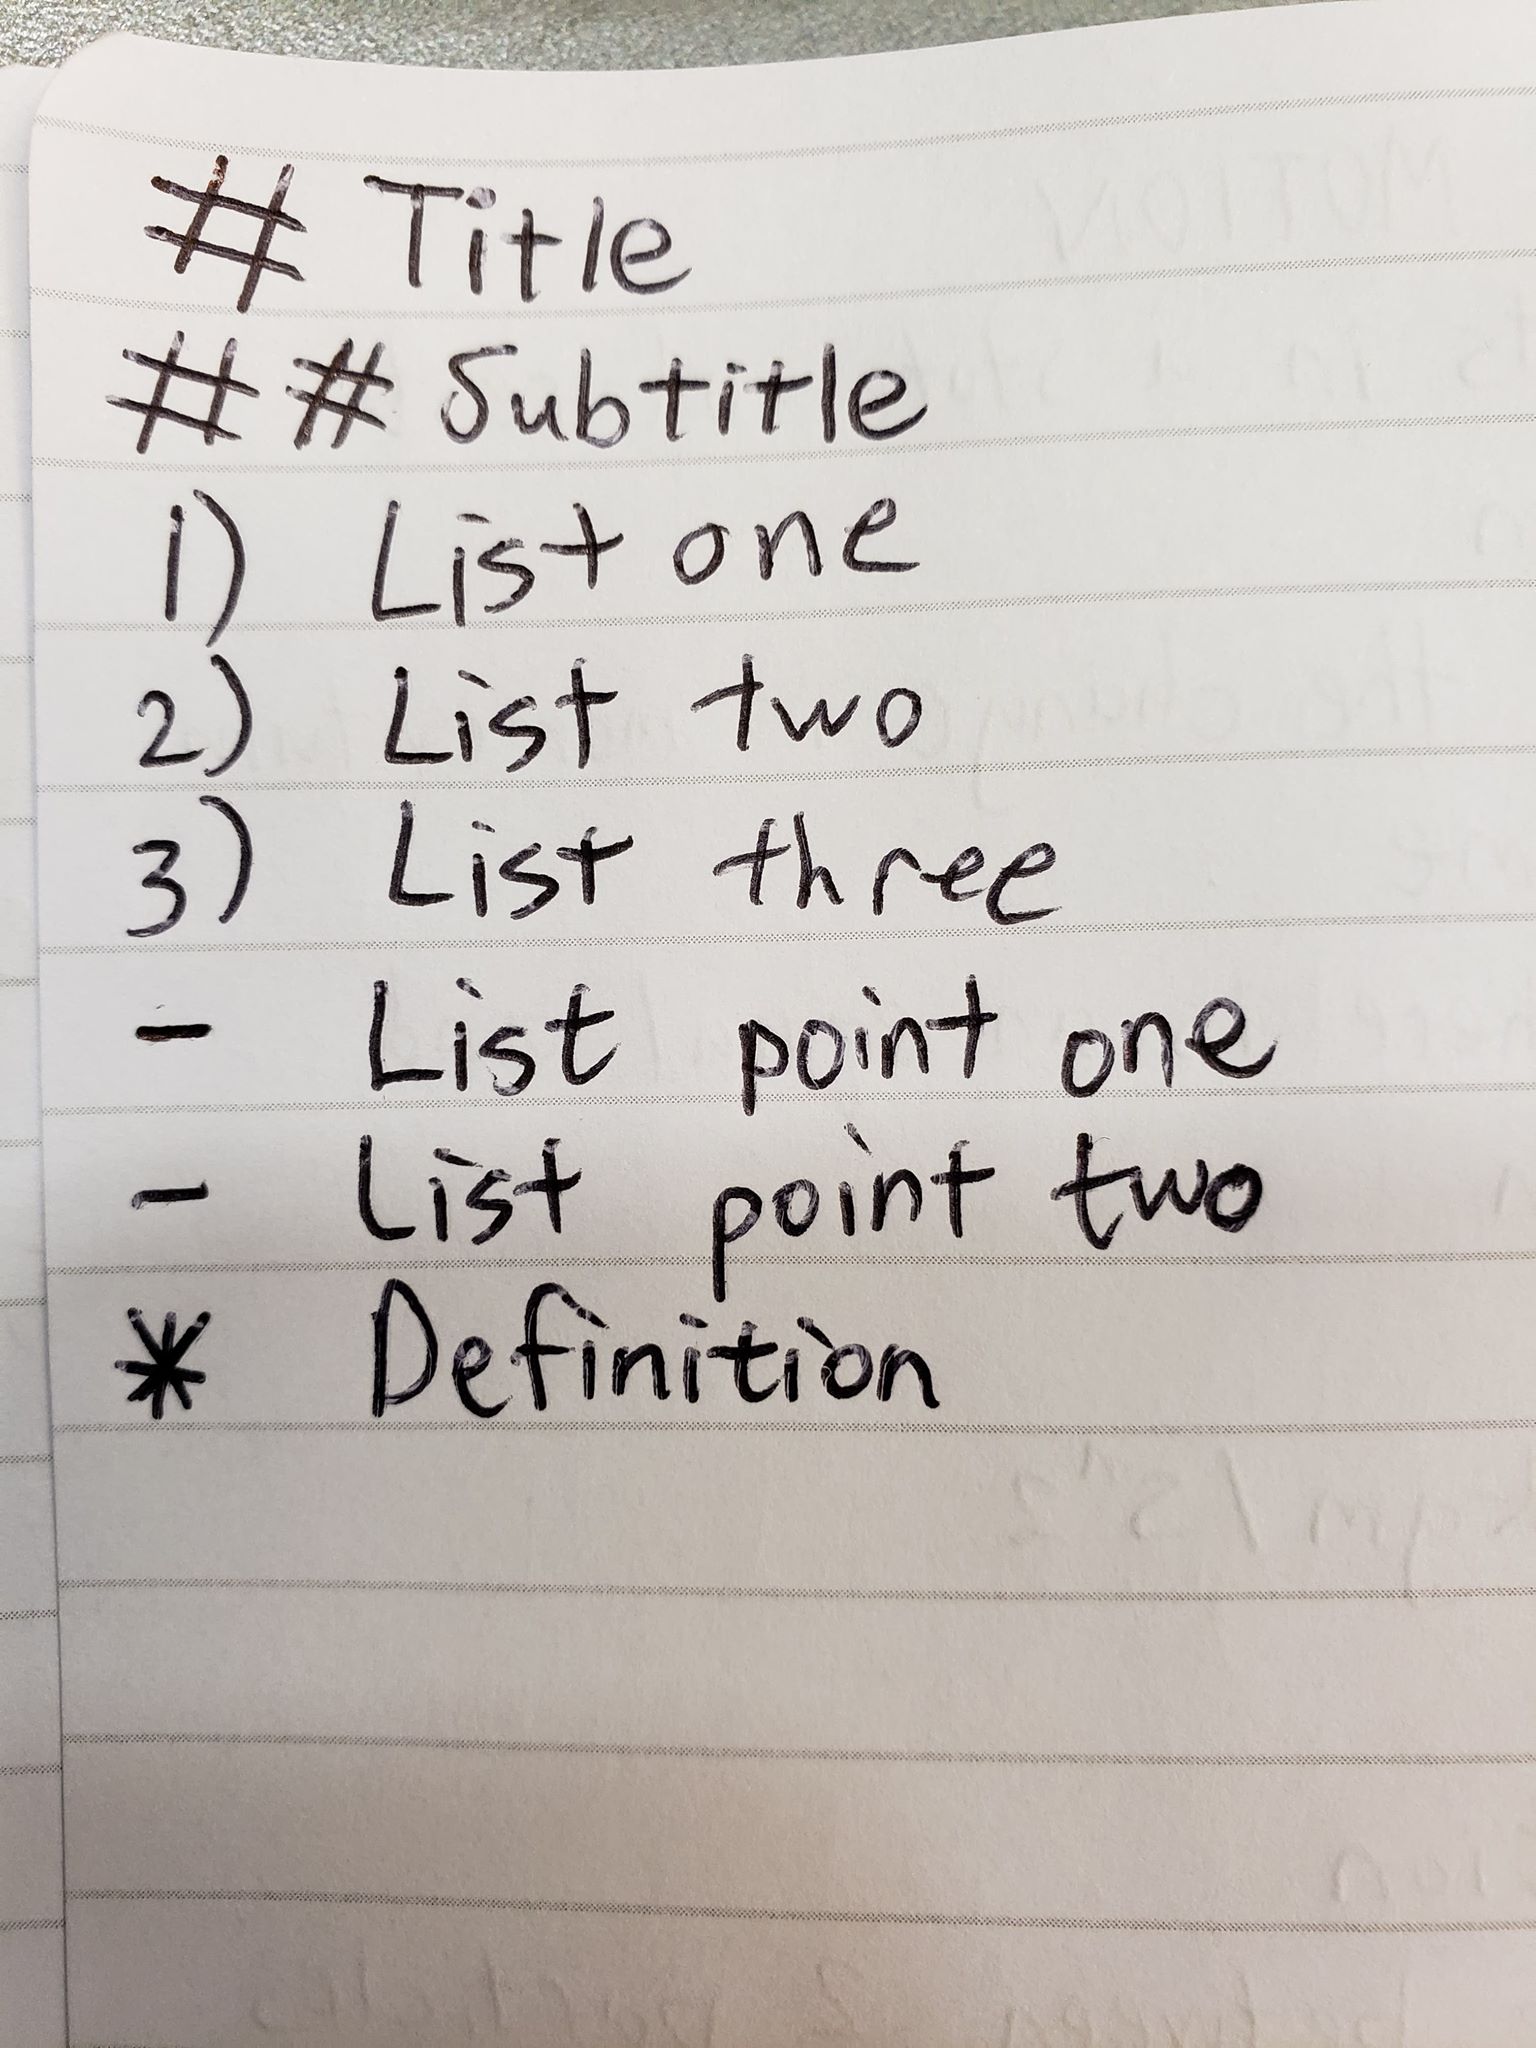 # Title
## Subtitle
1) List one
2) List two
3) List three
- List point one
- List point two
* Definition